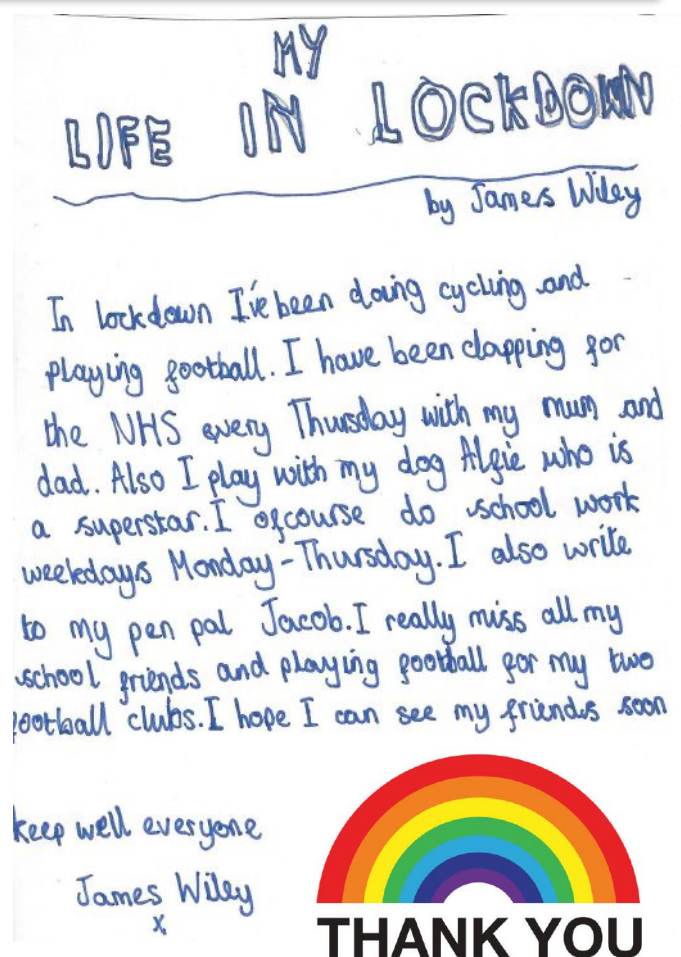 MY
LIFE IN LOCKDOWN
by James Wiley
In lockdown I've been doing cycling and
playing football. I have been clapping for
the NHS every Thursday with my mum and
dad. Also I play with my dog Algie who is
a superstar. I ofcourse do school work
weekdays Monday-Thursday. I also write
to my pen pal Jacob. I really miss all my
school friends and playing football for my two
football clubs. I hope I can see my friends soon
keep well everyone
James Wiley
x
THANK YOU